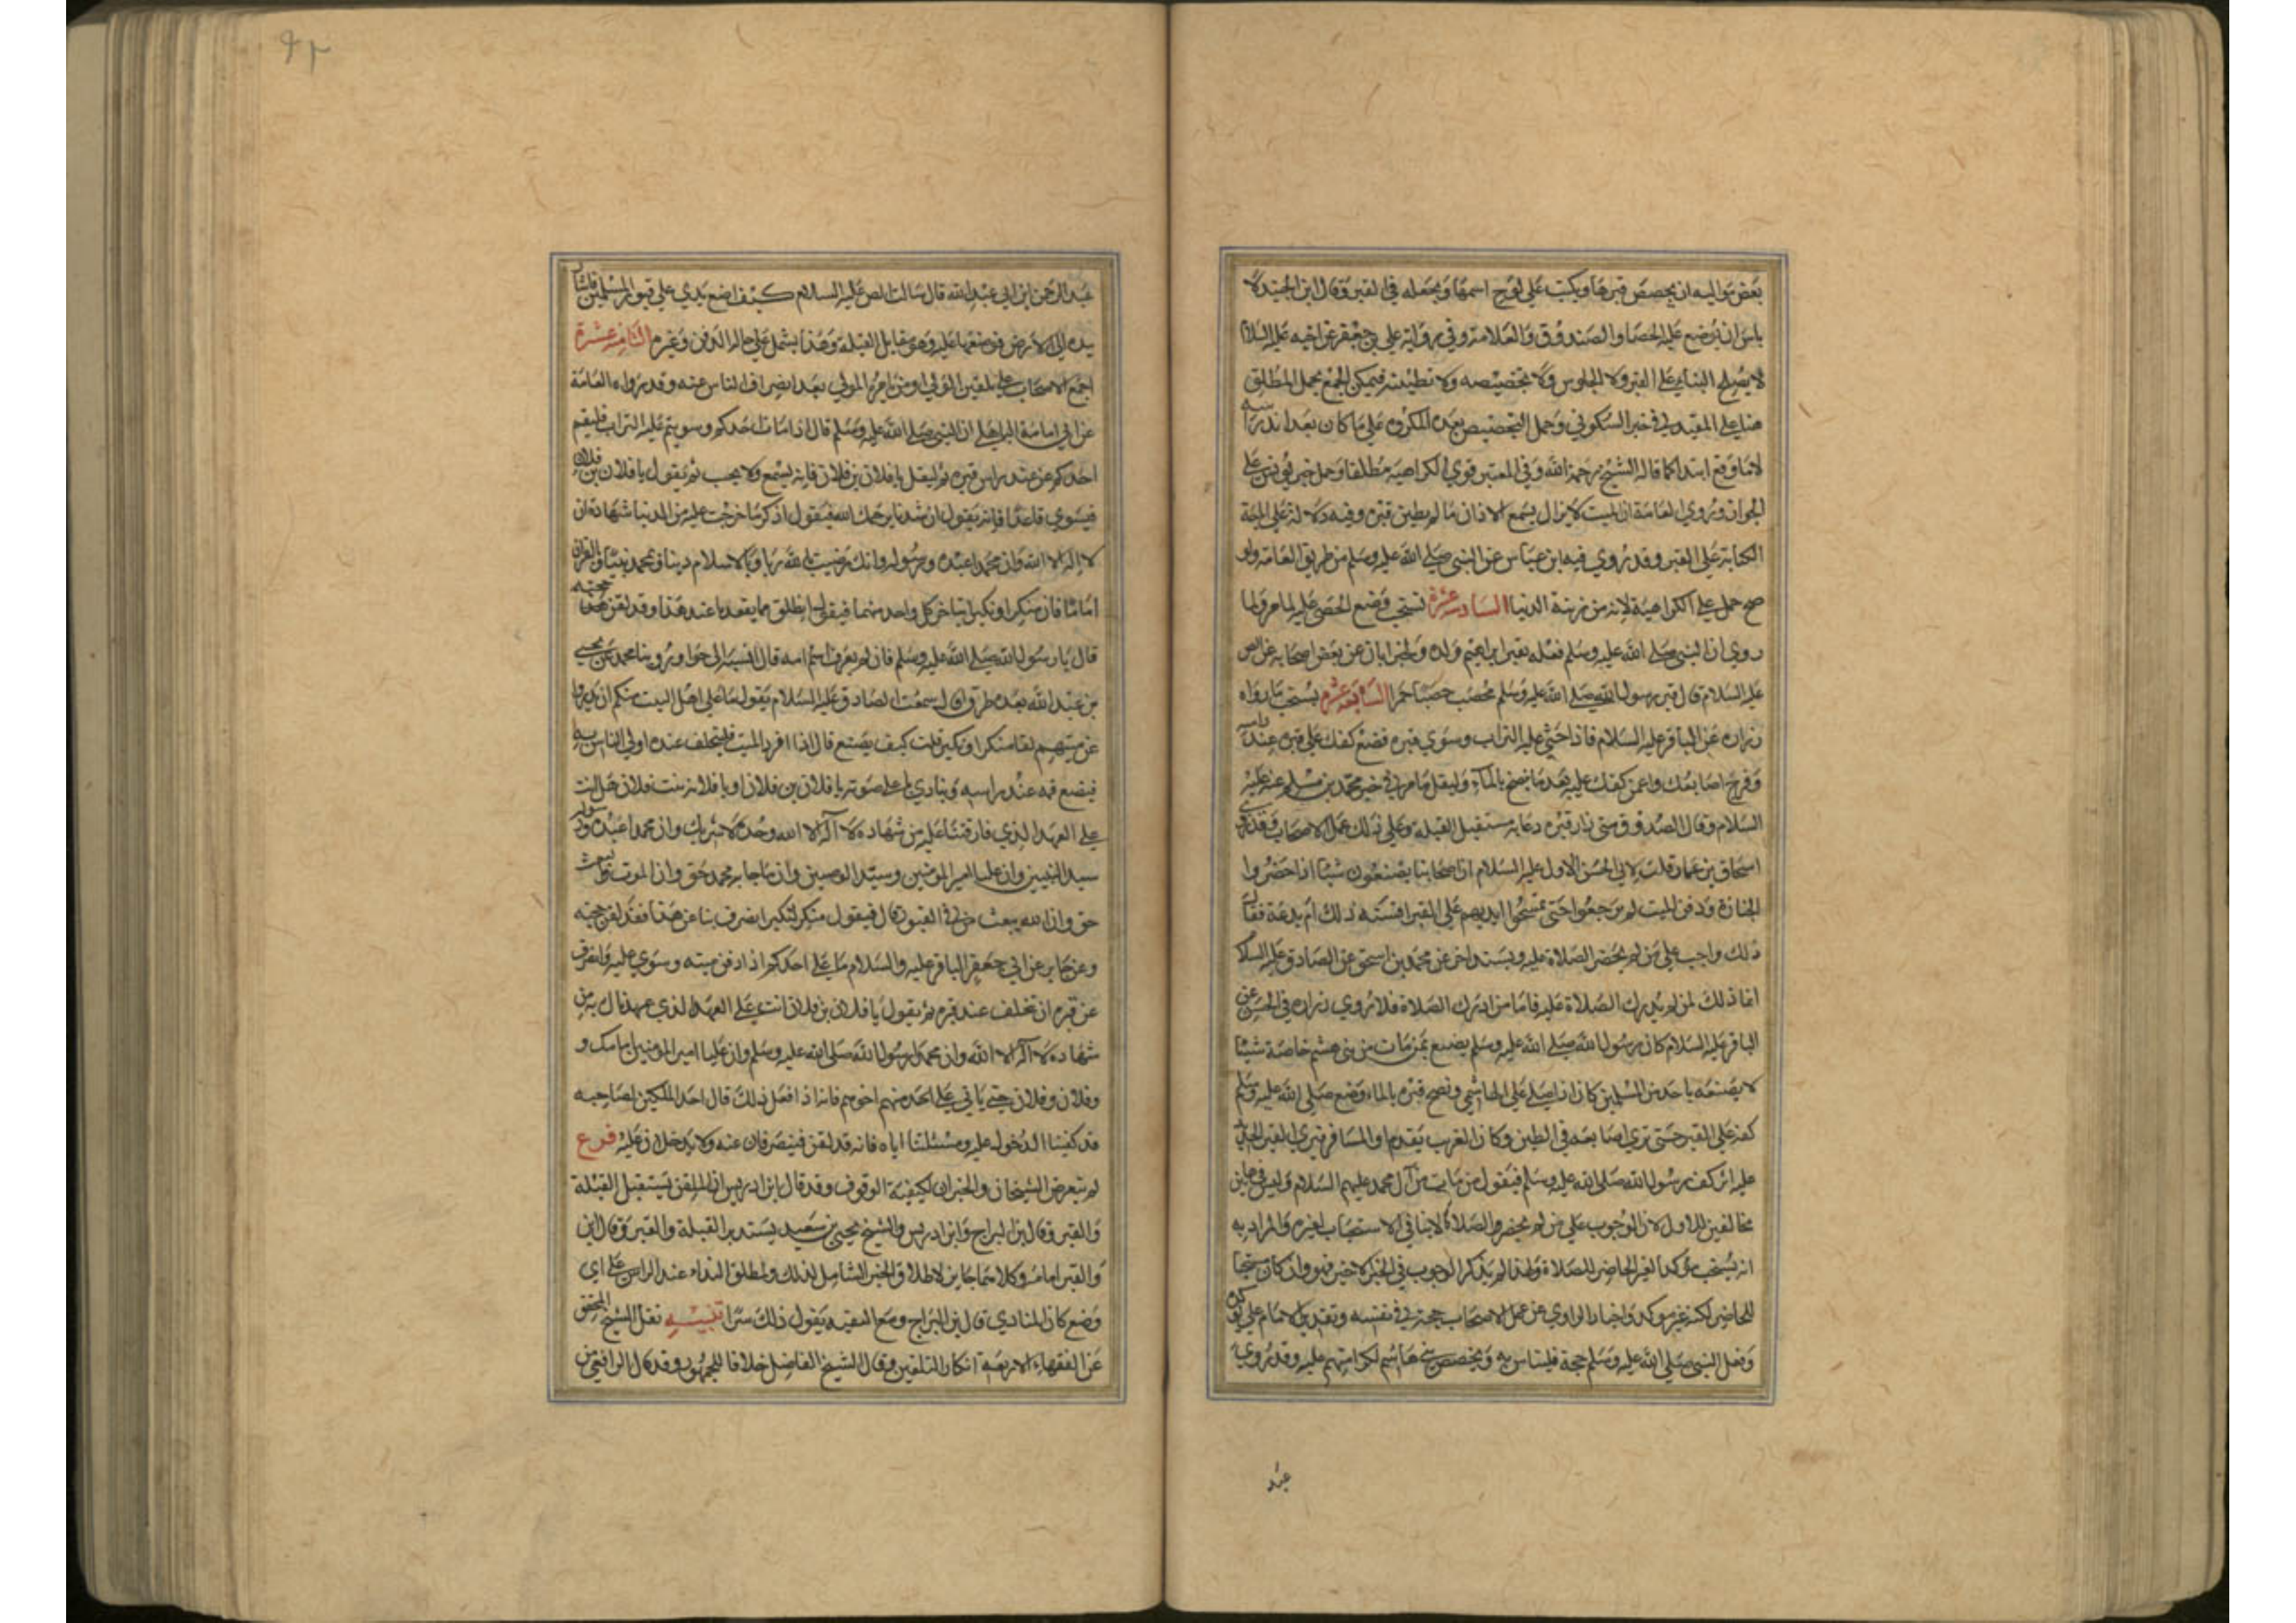 بعض مواليه ان يجصص قبرها ويكتب على لوح اسمها ويجعله في القبر وقال ابن الجنيد لا
باس ان يوضع عليه الحصا والصندوق والعلامة وفي رواية علي بن جعفر عن اخيه عليه السلام
لا يصلح البناء على القبر ولا الجلوس ولا تجصيصه ولا تطيينه فيمكن الجمع بحمل المطلق
هنا على المقيد في خبر السكوني وحمل التجصيص بعده المكروه على ما كان بعد اندراسه
لا ما وقع ابتدا كما قاله الشيخ رحمه الله وفي المعتبر قوي الكراهية مطلقا وحمل خبر يونس على
الجواز وروي العامة ان الميت لا يزال يسمع الاذان ما لم يطين قبره وفيه دلالة على
الكتابة على القبر وقد روي فيه ابن عباس عن النبي صلى الله عليه وسلم من طريق العامة ولو
صح حمل على الكراهية لانه من زينة الدنيا السادسة عشرة يستحب وضع الحصى عليه لما مر ولما
روي ان النبي صلى الله عليه وسلم فعله بقبر ابراهيم ولده ولخبر ابان عن بعض اصحابه عن الص
عليه السلام قال قبر رسول الله صلى الله عليه وسلم محصب حصبا حمرا السابعة عشره يستحب ما رواه
زراره عن الباقر عليه السلام فاذا حثي عليه التراب وسوي قبره فضع كفك على قبره عند راسه
وفرج اصابعك واغمز كفك عليه بعد ما ينضح بالماء وليقل ما مر في خبر محمد بن مسلم عنه عليه
السلام وقال الصدوق متى زار قبره دعا به مستقبل القبلة وعلى ذلك عمل الاصحاب وقد روى
اسحاق بن عمار قلت لابي الحسن الاول عليه السلام ان اصحابنا يصنعون شيئا اذا حضروا
الجنازة ودفن الميت لم يرجعوا حتى يمسحوا ايديهم على القبر افسنة ذلك ام بدعة فقال
ذلك واجب على من لم يحضر الصلاة عليه وبسند اخر عن محمد بن اسحق عن الصادق عليه السلام
انما ذلك لمن لم يدرك الصلاة عليه فاما من ادرك الصلاة فلا وروي زراره في الحسن عن
الباقر عليه السلام كان رسول الله صلى الله عليه وسلم يصنع بمن مات من بني هشم خاصة شيئا
لا يصنعه باحد من المسلمين كان اذا صلى على الهاشمي ونضح قبره بالماء وضع صلى الله عليه وسلم
كفه على القبر حتى تري اصابعه في الطين وكان الغريب يقدم او المسافر فيري القبر الجديد
عليه اثر كف رسول الله صلى الله عليه وسلم فيقول من مات من آل محمد عليهم السلام وليس في هاتين
مخالفين للاول لان الوجوب على من لم يحضر الصلاة لا ينافي الاستحباب لغيره والمراد به
انه يستحب مؤكدا لغير الحاضر للصلاة ولهذا لم يذكر الوجوب في الخبر الاخير فهو وان كان مستحبا
للحاضر لكنه غير مؤكد واخبار الراوي عن عمل الاصحاب حجة في نفسه وتقرير الامام علي يوكده
وفعل النبي صلى الله عليه وسلم حجة فليتاس به وتخصيص بني هاشم لكرامتهم عليه وقد روي
عبد
عبد الرحمن بن ابي عبد الله قال سالت الص عليه السلام كيف اضع يدي على قبور المسلمين فاشار
بيده الى الارض فوضعها عليه وهو مقابل القبلة وهذا يشمل على حالة الدفن وغيره الثامنة عشرة
اجمع الاصحاب على تلقين الولي او من يامره الولي بعد انصراف الناس عنه وقد رواه العامة
عن ابي امامة الباهلي ان النبي صلى الله عليه وسلم قال اذا مات احدكم وسويتم عليه التراب فليقم
احدكم عند راس قبره ثم ليقل يا فلان بن فلان فانه يسمع ولا يجيب ثم يقول يا فلان بن فلان
فيستوي قاعدا فانه يقول ارشدنا يرحمك الله فيقول اذكر ما خرجت عليه من الدنيا شهادة ان
لا اله الا الله وان محمدا عبده ورسوله وانك رضيت بالله ربا وبالاسلام دينا وبمحمد نبيا وبالقران
اماما فان منكرا ونكيرا يتاخر كل واحد منهما فيقول انطلق بما يقعدنا عند هذا وقد لقن حجته
قال يا رسول الله صلى الله عليه وسلم فان لم يعرف اسم امه قال انسبه الى حوا وروينا محمد عن يحيى
بن عبد الله بعدة طرق قال سمعت الصادق عليه السلام يقول ما على اهل الميت منكم ان يدرؤا
عن ميتهم لقا منكر ونكير قلت كيف يصنع قال اذا افرد الميت فليتخلف عنده اولي الناس به
فيضع فمه عند راسه وينادي باعلى صوته يا فلان بن فلان او يا فلانة بنت فلان هل انت
على العهد الذي فارقتنا عليه من شهادة لا اله الا الله وحده لا شريك وان محمدا عبده ورسوله
سيد النبيين وان عليا امير المؤمنين وسيد الوصيين وان ما جا به محمد حق وان الموت حق والبعث
حق وان الله يبعث من في القبور قال فيقول منكر لنكير انصرف بنا عن هذا فقد لقن حجته
وعن جابر عن ابي جعفر الباقر عليه والسلام ما على احدكم اذا دفن ميته وسوي عليه وانصرف
عن قبره ان يتخلف عند قبره ثم يقول يا فلان بن فلان انت على العهد الذي عهدناك به من
شهادة لا اله الا الله وان محمدا رسول الله صلى الله عليه وسلم وان عليا امير المؤمنين امامك و
وفلان وفلان حتى ياتي على احد منهم اخرهم فانه اذا فعل ذلك قال احد الملكين لصاحبه
قد كفينا الدخول عليه ومسئلتنا اياه فانه قد لقن فينصرفان عنه ولا يدخلان عليه فرع
لم يتعرض الشيخان والخبران لكيفية الوقوف وقد قال ابن ادريس ان الملقن يستقبل القبلة
والقبر وقال ابن البراج وابن ادريس والشيخ يحيى بن سعيد يستدبر القبلة والقبر وقال ابن
والقبر امامه وكلاهما جايز لاطلاق الخبر الشامل لذلك ولمطلق النداء عند الراس على اي
وضع كان المنادي قال ابن البراج ومع التقية يقول ذلك سرا تنبيه نقل الشيخ المحقق
عن الفقهاء الاربعة انكار التلقين وقال الشيخ الفاضل خلافا للجمهور وقد قال الرافعي من